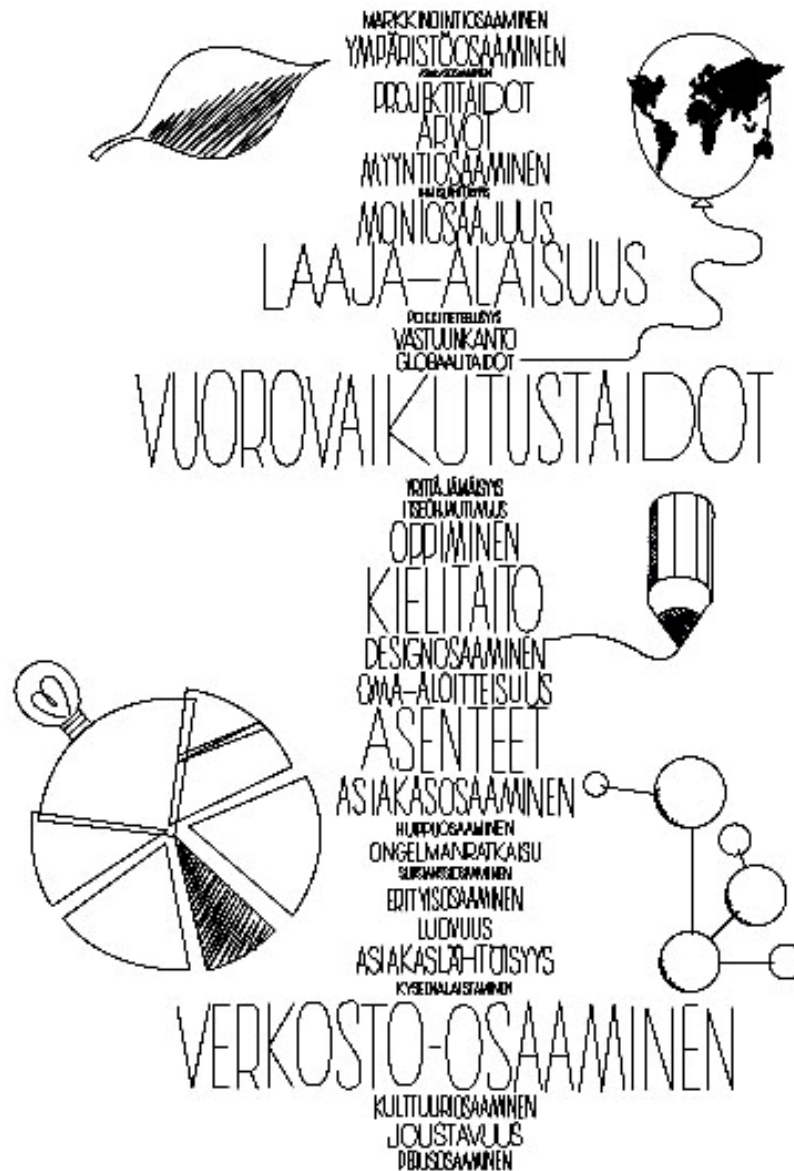 MARKKINOINTIOSAAMINEN
YMPÄRISTÖOSAAMINEN
PROJEKTITAIDOT
ARVOT
MYYNTIOSAAMINEN
MONIOSAAJUUS
LAAJA-ALAISUUS
VASTUUNKANTO
GLOBAALITAIDOT
VUOROVAIKUTUSTAIDOT
YRITTÄJÄMÄISYYS
ITSEOHJAUTUVUUS
OPPIMINEN
KIELITAITO
DESIGNOSAAMINEN
OMA-ALOITTEISUUS
ASENTEET
ASIAKASOSAAMINEN
HUIPPUOSAAMINEN
ONGELMANRATKAISU
ERITYISOSAAMINEN
LUOVUUS
ASIAKASLÄHTÖISYYS
KYSEENALAISTAMINEN
VERKOSTO-OSAAMINEN
KULTTUURIOSAAMINEN
JOUSTAVUUS
PERUSOSAAMINEN